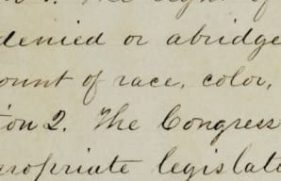 denied or abridge
ount of race, color,
ion 2. The Congress
ropriate legislat